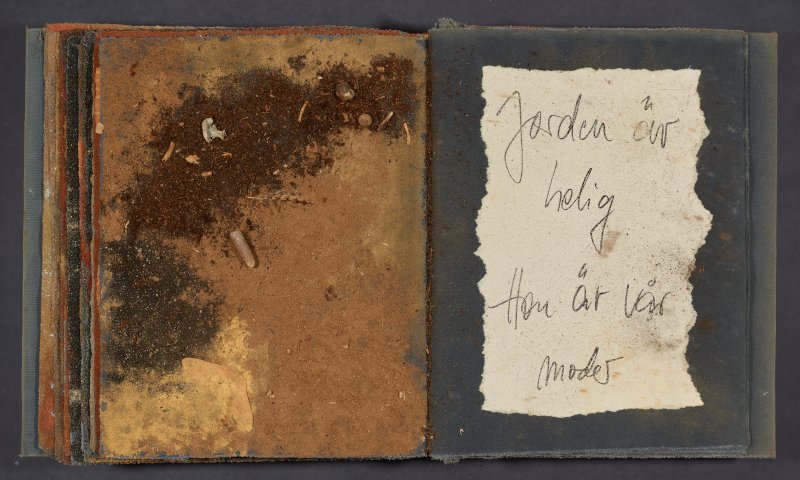 Jorden är
helig
Hon är vår
moder